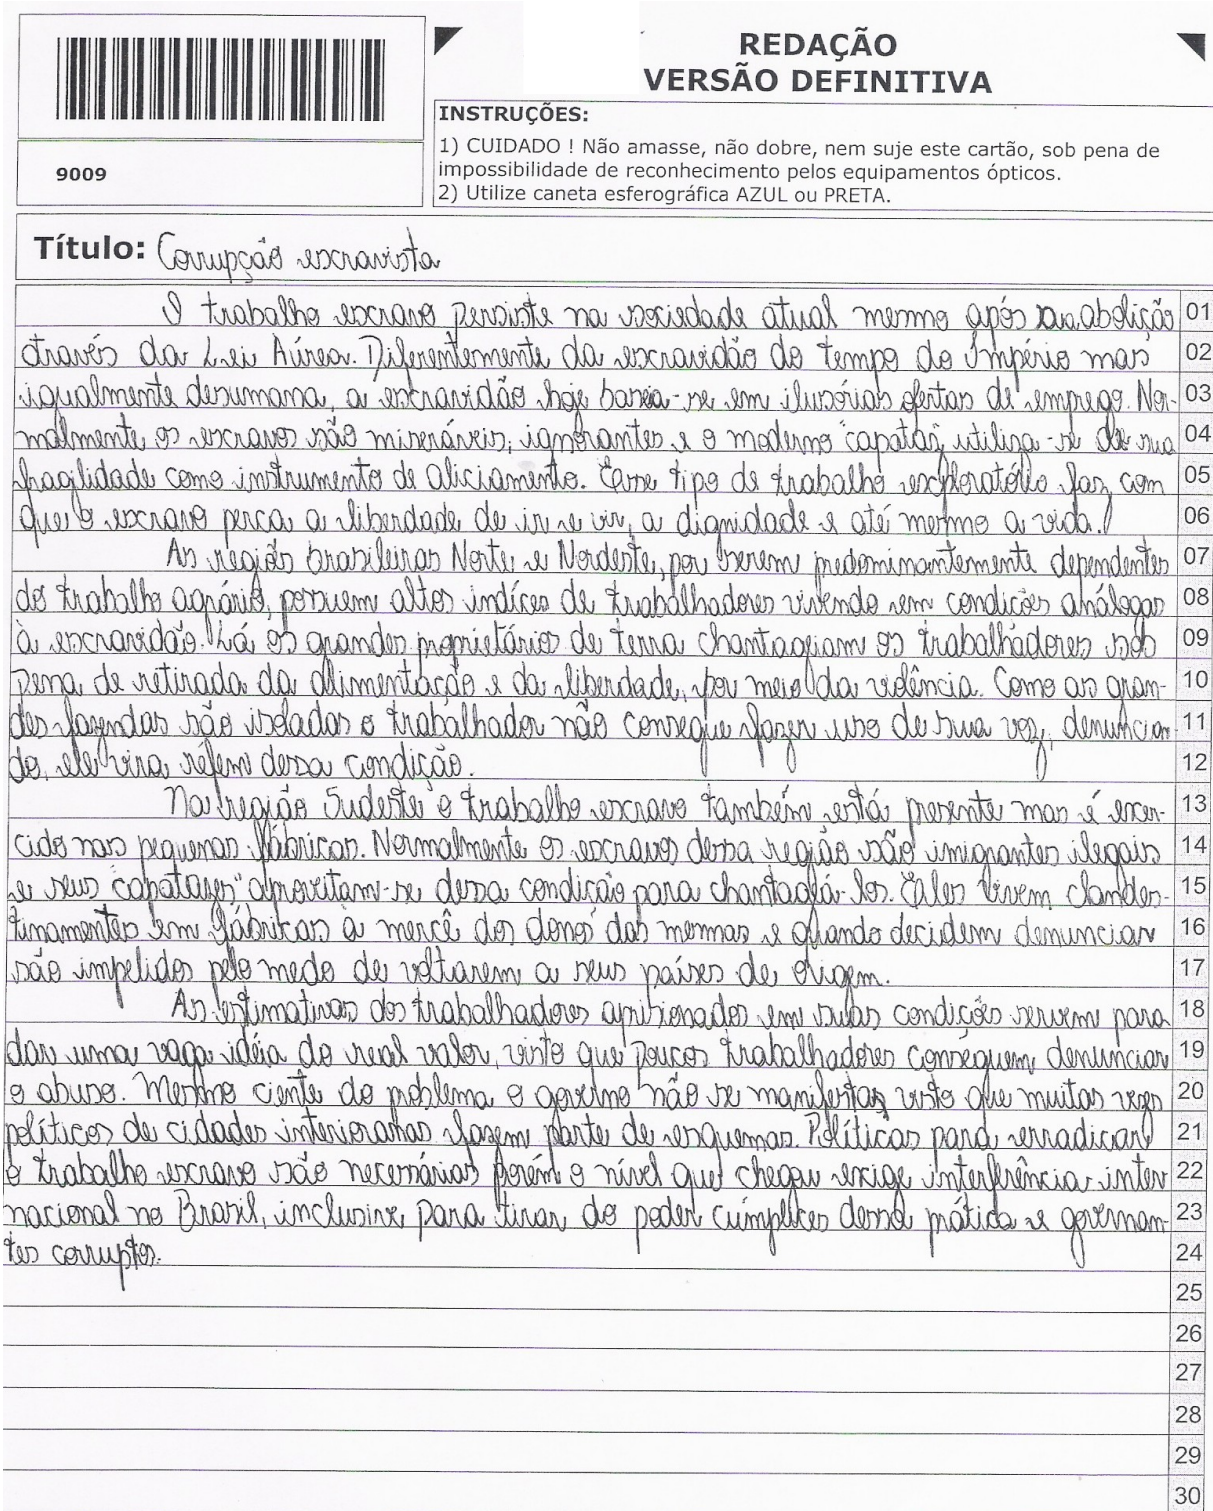 REDAÇÃO
VERSÃO DEFINITIVA
INSTRUÇÕES:
1) CUIDADO ! Não amasse, não dobre, nem suje este cartão, sob pena de
impossibilidade de reconhecimento pelos equipamentos ópticos.
2) Utilize caneta esferográfica AZUL ou PRETA.
9009
Título: Corrupção escravista
O trabalho escravo persiste na sociedade atual mesmo após sua abolição 01
através da Lei Aúrea. Diferentemente da escravidão do tempo do Império mas 02
igualmente desumana, a escravidão hoje baseia-se em ilusórias ofertas de emprego. Nor- 03
malmente os escravos são miseráveis, ignorantes e o moderno "capataz" utiliza-se de sua 04
fragilidade como instrumento de aliciamento. Esse tipo de trabalho exploratório faz com 05
que o escravo perca a liberdade de ir e vir, a dignidade e até mesmo a vida. 06
As regiões brasileiras Norte e Nordeste, por serem predominantemente dependentes 07
do trabalho agrário, possuem altos indíces de trabalhadores vivendo em condições análogas 08
à escravidão. Lá os grandes proprietários de terra chantageiam os trabalhadores sob 09
pena de retirada da alimentação e da liberdade, por meio da violência. Como as gran- 10
des fazendas são isoladas o trabalhador não consegue fazer uso de sua voz, denuncian- 11
do, ele vira refém dessa condição. 12
Na região Sudeste o trabalho escravo também está presente mas é exer- 13
cido nas pequenas fábricas. Normalmente os escravos dessa região são imigrantes ilegais 14
e seus "capatazes" aproveitam-se dessa condição para chantageá-los. Eles vivem clandes- 15
tinamentes em fábricas à mercê dos donos das mesmas e quando decidem denunciar 16
são impelidos pelo medo de voltarem a seus países de origem. 17
As estimativas dos trabalhadores aprisionados em suas condições servem para 18
dar uma vaga idéia do real valor, visto que poucos trabalhadores conseguem denunciar 19
o abuso. Mesmo ciente do problema o governo não se manifesta, visto que muitas vezes 20
políticos de cidades interioranas fazem parte de esquemas. Políticas para erradicar 21
o trabalho escravo são necessárias porém o nível que chegou exige interferência inter 22
nacional no Brasil, inclusive, para tirar do poder cúmplices dessa prática e governan- 23
tes corruptos. 24
25
26
27
28
29
30